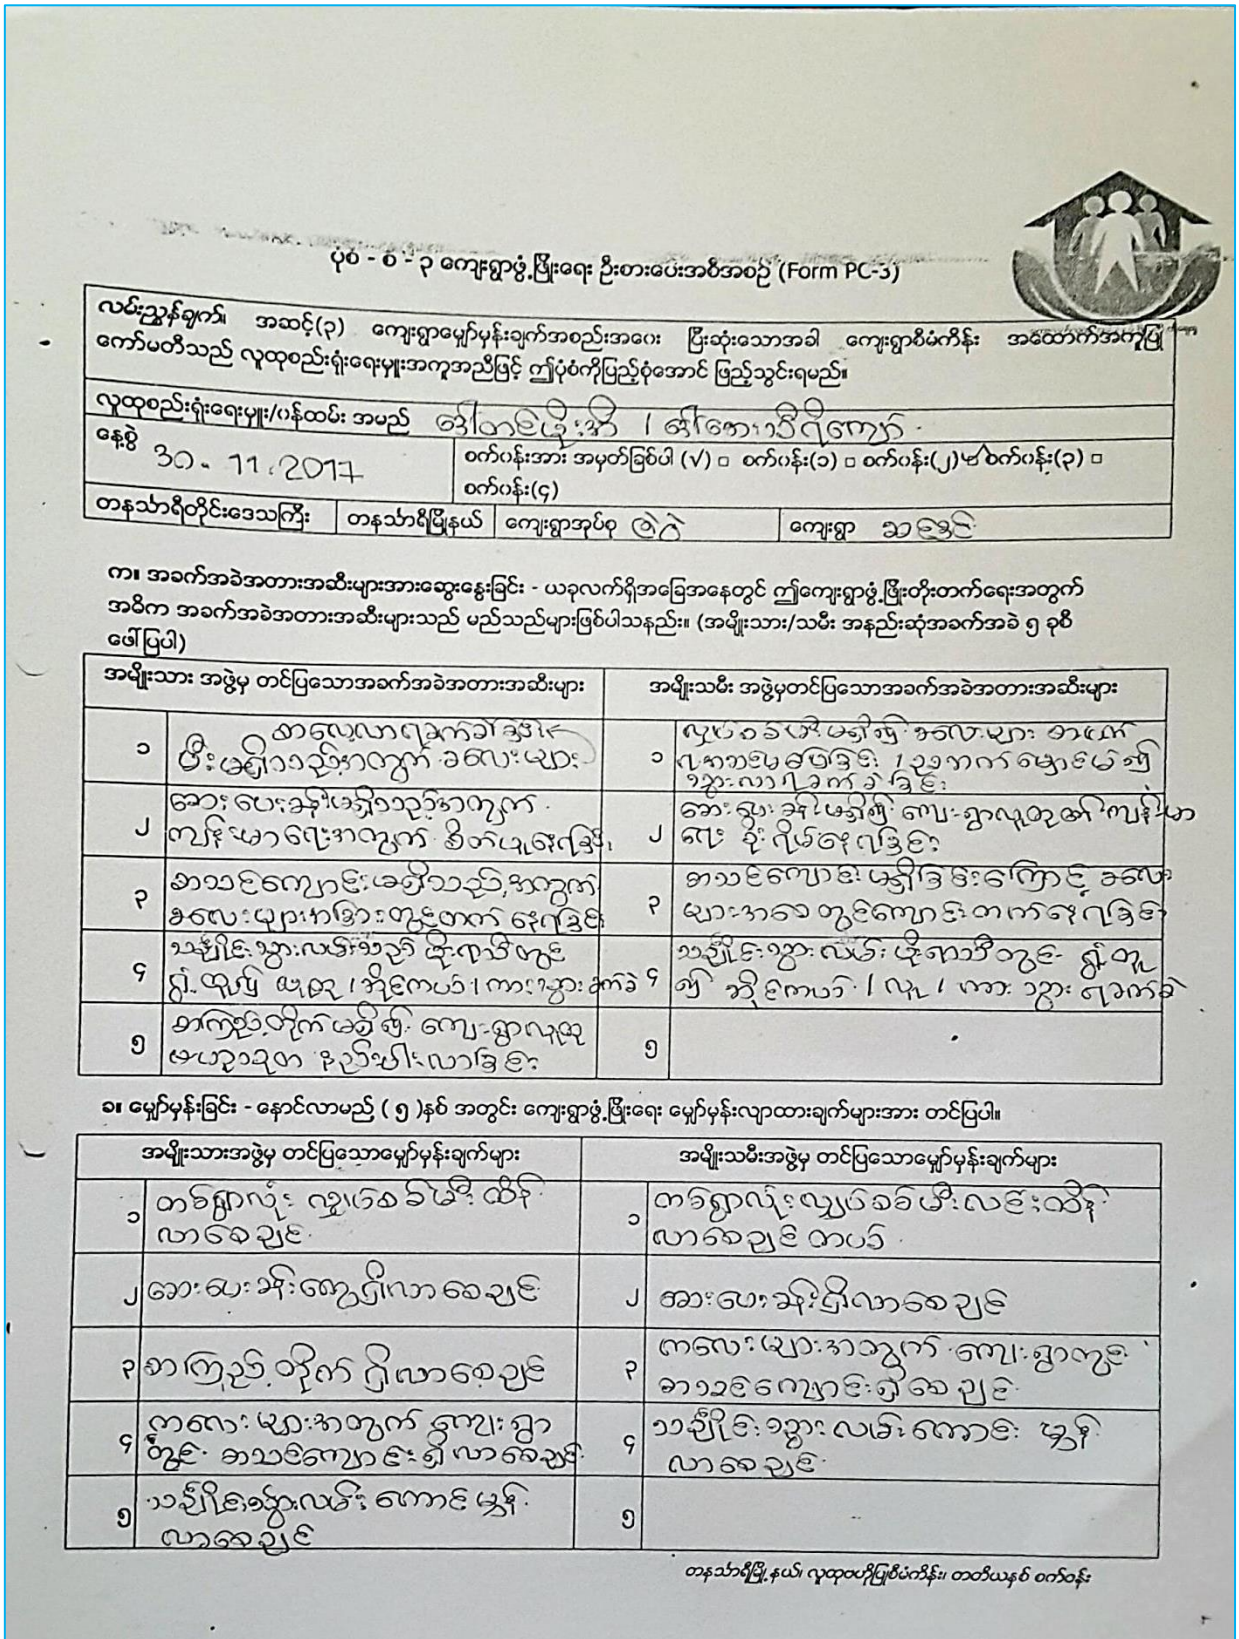 ပုံစံ - စ - ၃ ကျေးရွာဖွံ့ဖြိုးရေး ဦးစားပေးအစီအစဉ် (Form PC-3)
လမ်းညွှန်ချက်။ အဆင့်(၃) ကျေးရွာမျှော်မှန်းချက်အစည်းအဝေး ပြီးဆုံးသောအခါ ကျေးရွာစီမံကိန်း အထောက်အကူပြု
ကော်မတီသည် လူထုစည်းရုံးရေးမှူးအကူအညီဖြင့် ဤပုံစံကိုပြည့်စုံအောင် ဖြည့်သွင်းရမည်။
လူထုစည်းရုံးရေးမှူး/ဝန်ထမ်း အမည်
နေ့စွဲ 30.11.2017
စက်ဝန်းအား အမှတ်ခြစ်ပါ (√) □ စက်ဝန်း(၁) □ စက်ဝန်း(၂) ☑ စက်ဝန်း(၃) □
စက်ဝန်း(၄)
တနင်္သာရီတိုင်းဒေသကြီး တနင်္သာရီမြို့နယ် ကျေးရွာအုပ်စု ကျေးရွာ
က။ အခက်အခဲအတားအဆီးများအားဆွေးနွေးခြင်း - ယခုလက်ရှိအခြေအနေတွင် ဤကျေးရွာဖွံ့ဖြိုးတိုးတက်ရေးအတွက်
အဓိက အခက်အခဲအတားအဆီးများသည် မည်သည်များဖြစ်ပါသနည်း။ (အမျိုးသား/သမီး အနည်းဆုံးအခက်အခဲ ၅ ခုစီ
ဖေါ်ပြပါ)
အမျိုးသား အဖွဲ့မှ တင်ပြသောအခက်အခဲအတားအဆီးများ အမျိုးသမီး အဖွဲ့မှတင်ပြသောအခက်အခဲအတားအဆီးများ
၁ စာလေ့လာရခက်ခဲခြင်း
မီးမရှိသည့်အတွက် ခလေးများ
၁ လျှပ်စစ်မီးမရှိ၍ ခလေးများ
သွားလာရခက်ခဲခြင်း
၂ ဆေးပေးခန်းမရှိသည့်အတွက်
ကျန်းမာရေးအတွက် စိတ်ပူနေရခြင်း
၂ ဆေးပေးခန်းမရှိ၍ ကျေးရွာလူထု၏ကျန်းမာ
ရေး စိုးရိမ်နေရခြင်း
၃ စာသင်ကျောင်းမရှိသည့်အတွက်
ခလေးများအခြားတွင်တက်နေရခြင်း
၃ စာသင်ကျောင်းမရှိခြင်းကြောင့် ခလေး
များအဝေးတွင်ကျောင်းတက်နေရခြင်း
၄ သင်္ချိုင်းသွားလမ်းသည် မိုးရာသီတွင်
ရွှံ့ထူ၍ လူထု / ဆိုင်ကယ် / ကားသွားခက်ခဲ
၄ သင်္ချိုင်းသွားလမ်း မိုးရာသီတွင် ရွှံ့ထူ
၍ ဆိုင်ကယ် / လူ / ကား သွားရခက်ခဲ
၅ စာကြည့်တိုက်မရှိ၍ ကျေးရွာလူထု
ဗဟုသုတ နည်းပါးလာခြင်း
၅
ခ။ မျှော်မှန်းခြင်း - နောင်လာမည် ( ၅ )နှစ် အတွင်း ကျေးရွာဖွံ့ဖြိုးရေး မျှော်မှန်းလျာထားချက်များအား တင်ပြပါ။
အမျိုးသားအဖွဲ့မှ တင်ပြသောမျှော်မှန်းချက်များ အမျိုးသမီးအဖွဲ့မှ တင်ပြသောမျှော်မှန်းချက်များ
၁ တစ်ရွာလုံး လျှပ်စစ်မီး ထိန်
လာစေချင်
၁ တစ်ရွာလုံးလျှပ်စစ်မီးလင်းထိန်
လာစေချင်တယ်
၂ ဆေးပေးခန်းတွေရှိလာစေချင်
၂ ဆေးပေးခန်းရှိလာစေချင်
၃ စာကြည့်တိုက် ရှိလာစေချင်
၃ ကလေးများအတွက် ကျေးရွာတွင်
စာသင်ကျောင်းရှိစေချင်
၄ ကလေးများအတွက် ကျေးရွာ
တွင် စာသင်ကျောင်းရှိလာစေချင်
၄ သင်္ချိုင်းသွားလမ်းကောင်းမွန်
လာစေချင်
၅ သင်္ချိုင်းသွားလမ်း ကောင်းမွန်
လာစေချင်
၅
တနင်္သာရီမြို့နယ်၊ လူထုဗဟိုပြုစီမံကိန်း၊ တတိယနှစ် စက်ဝန်း